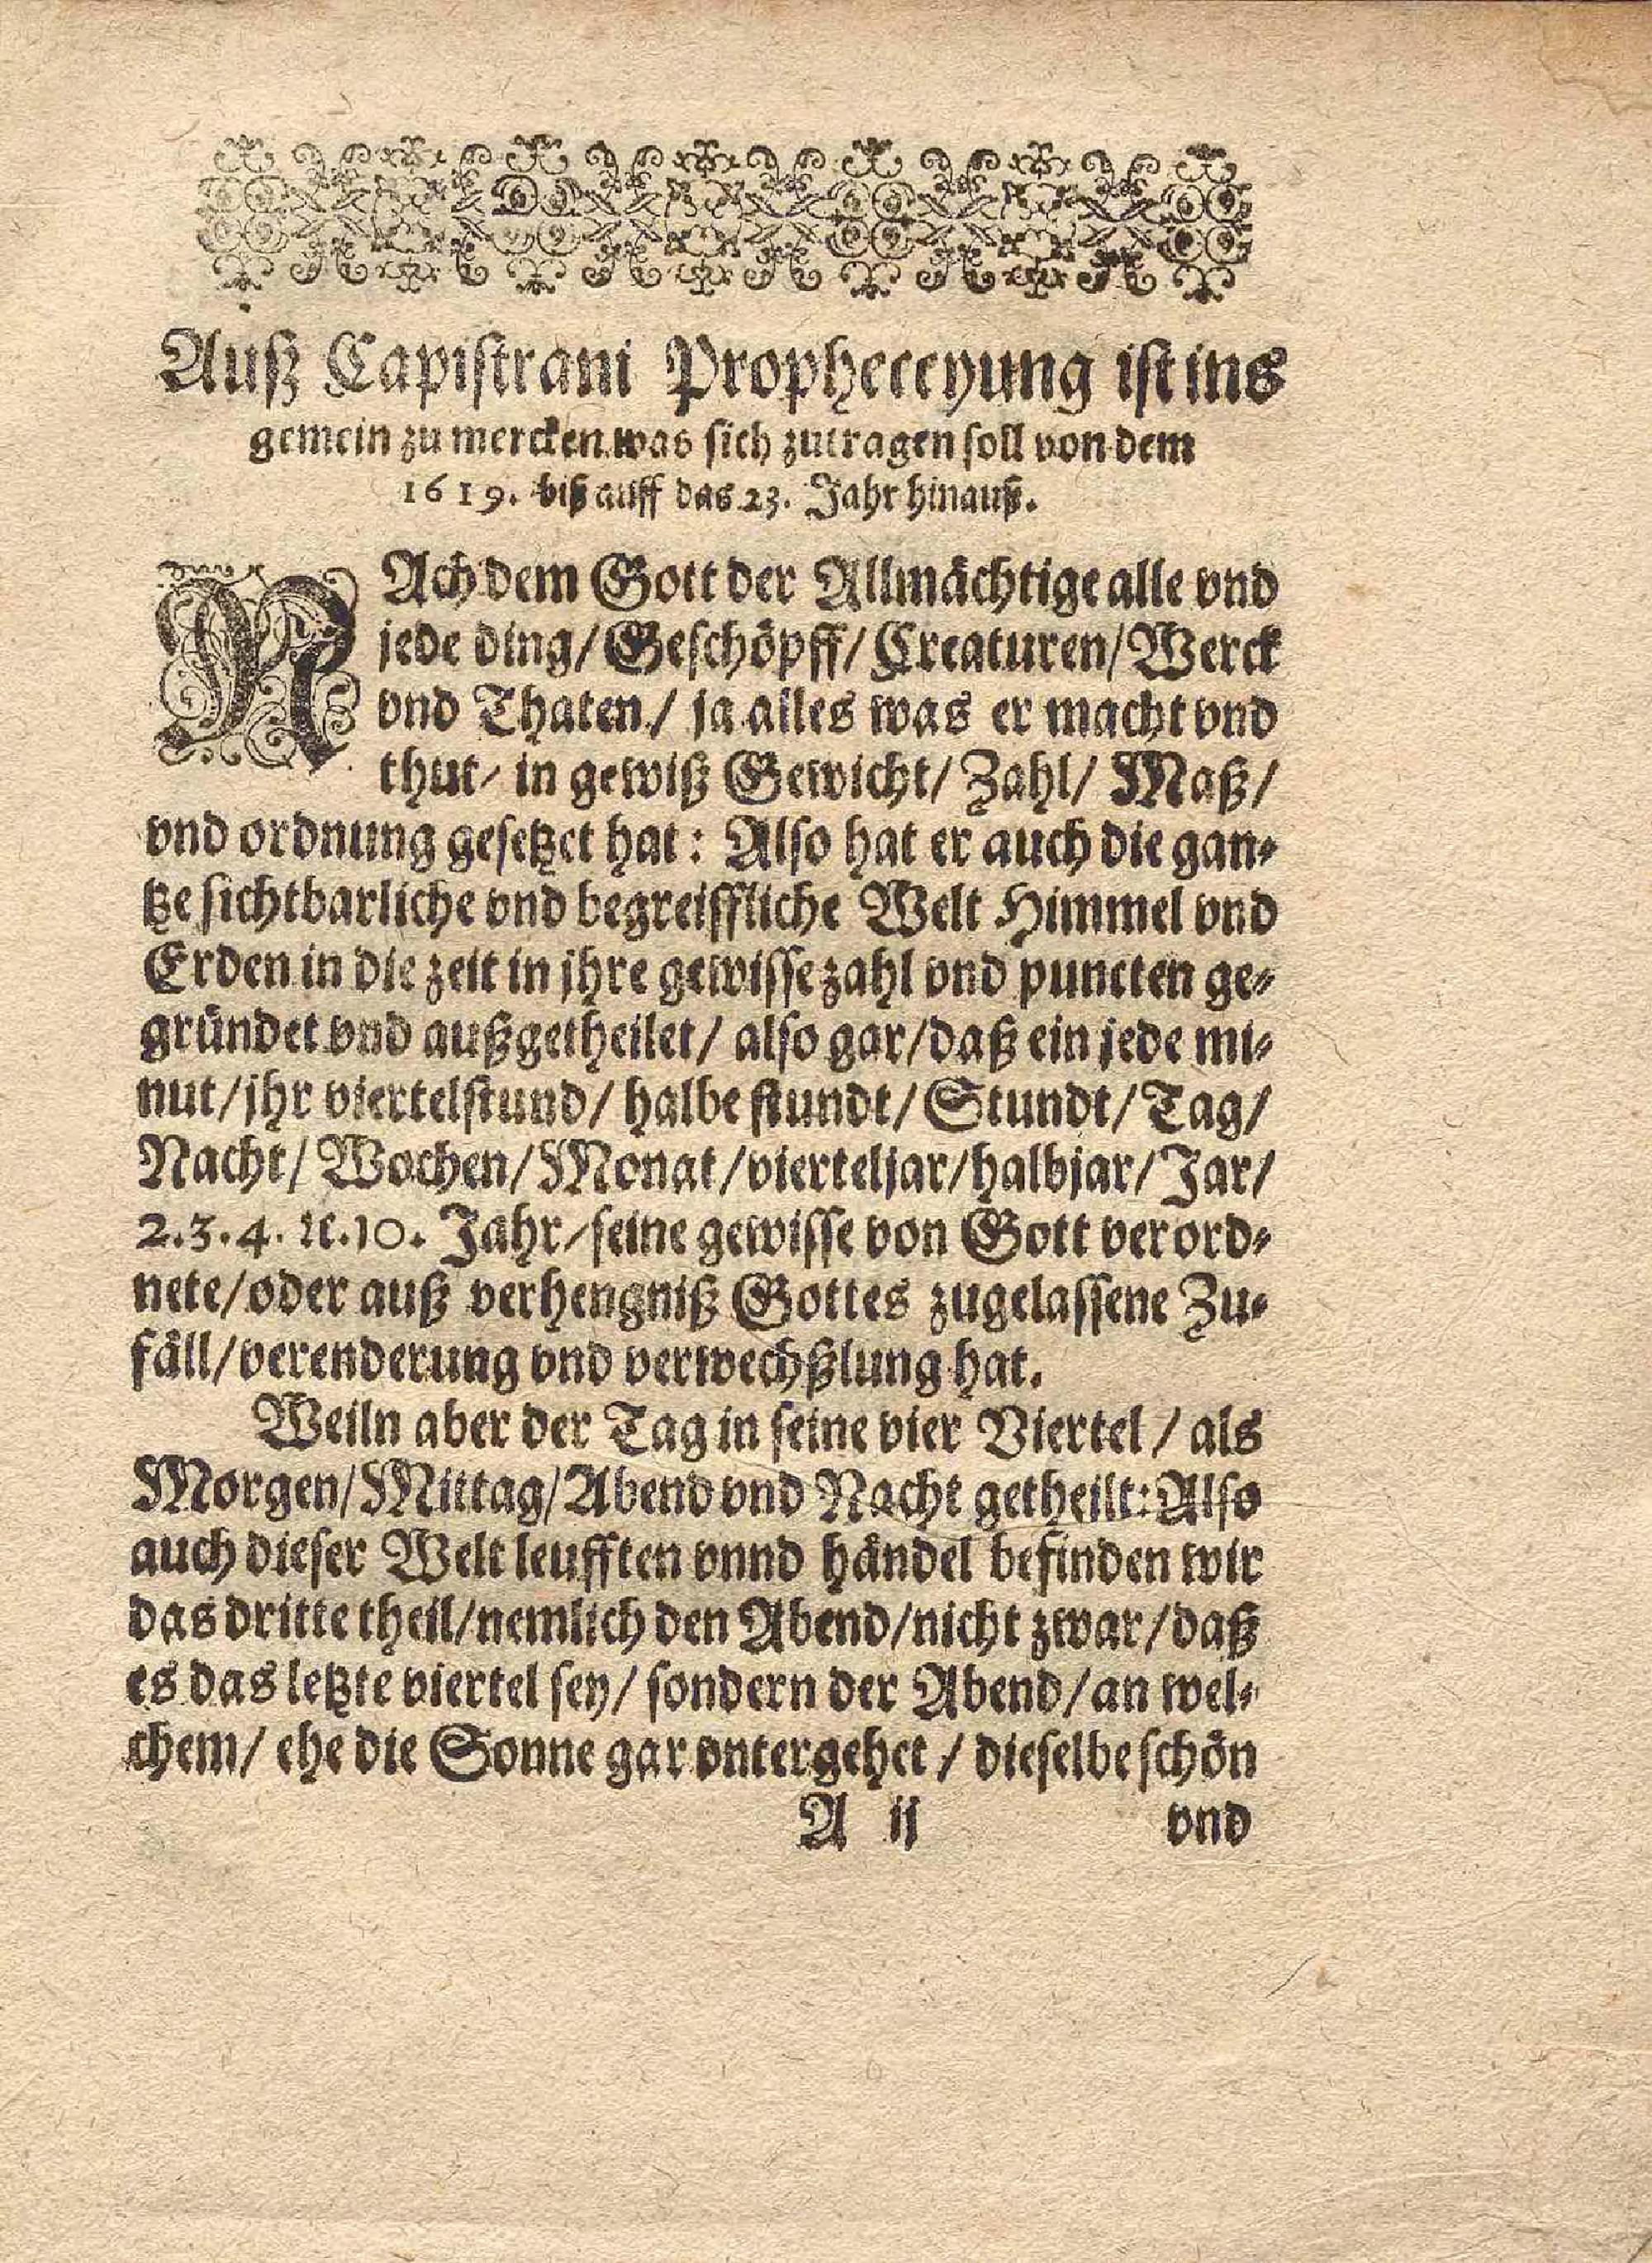 Auß Capistrani Propheceyung ist ins
gemein zu mercken was sich zutragen soll von dem
1619. biß auff das 23. Jahr hinauß.
NAch dem Gott der Allmächtige alle vnd
jede ding/ Geschöpff/ Creaturen/ Werck
vnd Thaten/ ja alles was er macht vnd
thut/ in gewiß Gewicht/ Zahl/ Maß/
vnd ordnung gesetzet hat: Also hat er auch die gan-
tze sichtbarliche vnd begreiffliche Welt Himmel vnd
Erden in die zeit in jhre gewisse zahl vnd puncten ge-
gründet vnd außgetheilet/ also gar/ daß ein jede mi-
nut/ jhr viertelstund/ halbe stundt/ Stundt/ Tag/
Nacht/ Wochen/ Monat/ vierteljar/ halbjar/ Jar/
2.3.4. ꝛc.10. Jahr/ seine gewisse von Gott verord-
nete/ oder auß verhengniß Gottes zugelassene Zu-
fäll/ verenderung vnd verwechßlung hat.
Weiln aber der Tag in seine vier Viertel/ als
Morgen/ Mittag/ Abend vnd Nacht getheilt: Also
auch dieser Welt leufften vnnd händel befinden wir
das dritte theil/ nemlich den Abend/ nicht zwar/ daß
es das letzte viertel sey/ sondern der Abend/ an wel-
chem/ ehe die Sonne gar vntergehet/ dieselbe schön
A ij vnd